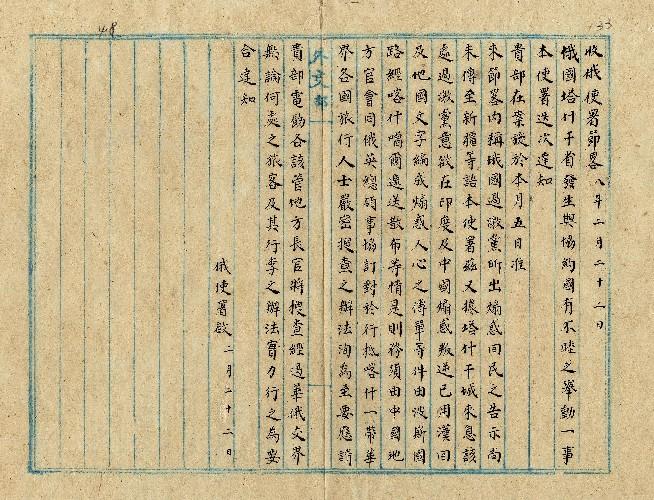 收俄使署節畧 八年二月二十二日
俄國塔什干省發生與協約國有不睦之舉動一事
本使署迭次達知
貴部在案旋於本月五日准
來節畧內稱俄國過激黨所出煽惑回民之告示尚
未傳至新疆等語本使署茲又據塔什干城來息該
處過激黨意欲在印度及中國煽惑叛逆已用漢回
及他國文字編成煽惑人心之傳單等件由波斯國
路經喀什噶爾遞送散布等情是則務須由中國地
方官會同俄英總領事協訂對於行抵喀什一帶華
界各國旅行人士嚴密搜查之辦法洵為至要應請
貴部電飭各該管地方長官將搜查經過華俄交界
無論何處之旅客及其行李之辦法實力行之為要
合達知
俄使署啟 二月二十二日
外交部
48